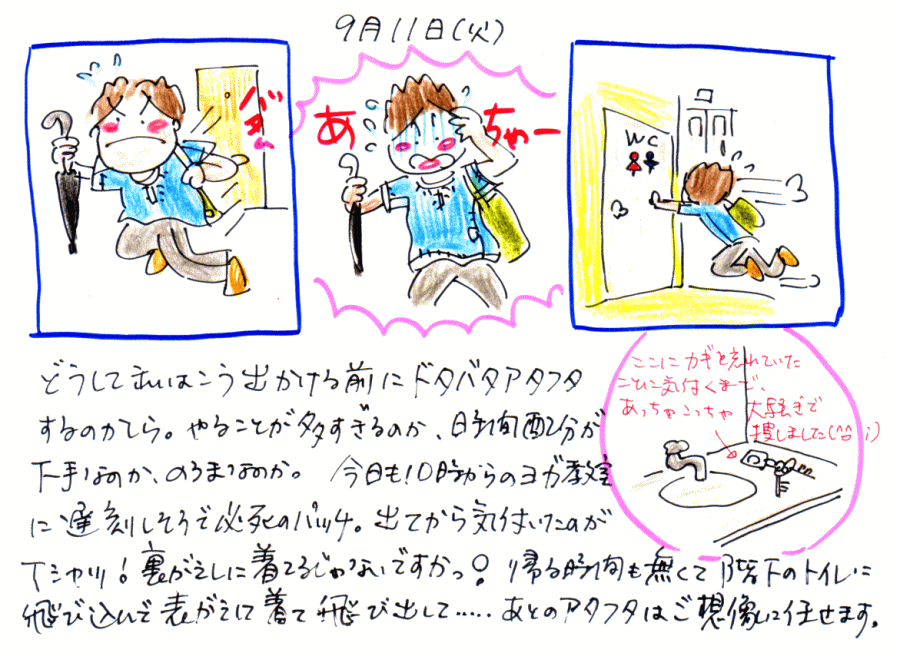 9月11日(火)
バタム
あちゃー
WC
どうして私はこう出かける前にドタバタアタフタ
するのかしら。やることが多すぎるのか、時間配分が
下手なのか、のろまなのか。 今日も10時からのヨガ教室
に遅刻しそうで必死のパッチ。出てから気付いたのが
Tシャツ!裏がえしに着てるじゃないですかっ! 帰る時間も無くて階下のトイレに
飛び込んで表がえして着て飛び出して.....あとのアタフタはご想像に任せます。
ここにカギを忘れていた
ことに気付くまで、
あっちゃこっちゃ 大騒ぎで
捜しました(^^;)